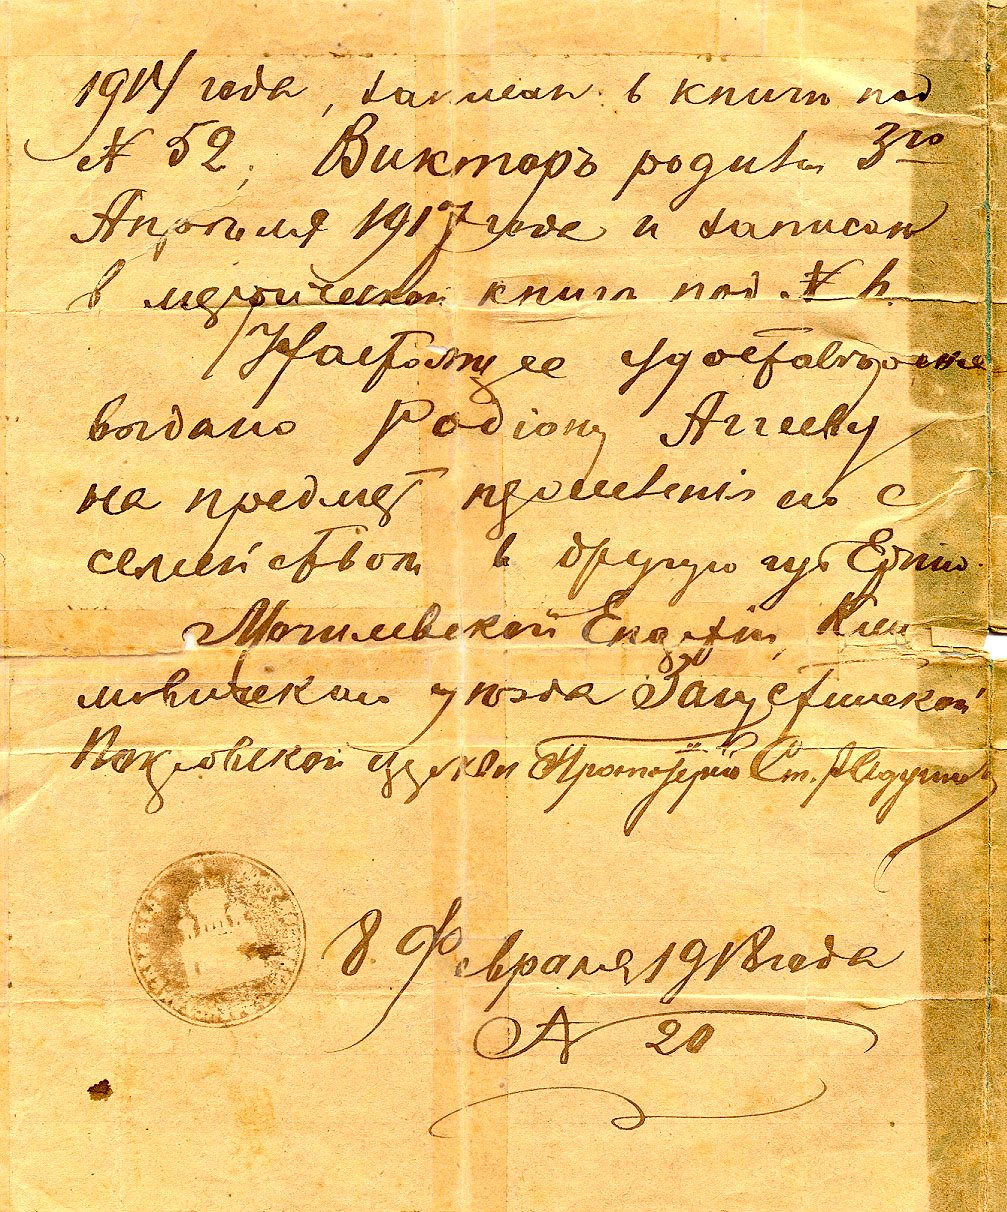 1914 года, записан в книги под
№ 52, Викторъ родився 3го
Апрѣля 1917 года и записан
в метрической книги под №
Настоящее удостовѣрение
выдано Родіону Агееву
на предмет
семейством в другую губернію.
Могилевской Епархіи, Кли-
мовическаго уѣзда Загустинской
Покровской церкви Протоіерей Ст.
8 Февраля 1918 года
№ 20